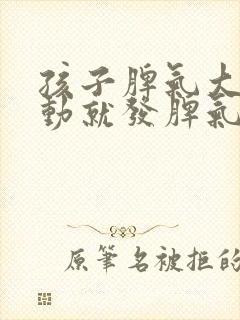 孩子脾氣大
動就發脾氣
原筆名被拒的